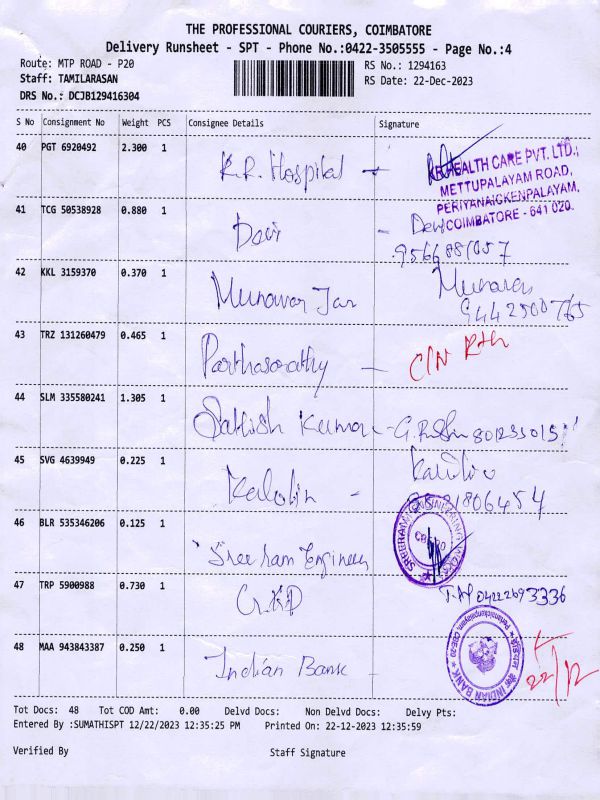 THE PROFESSIONAL COURIERS, COIMBATORE
Delivery Runsheet - SPT - Phone No.:0422-3505555 - Page No.:4
Route: MTP ROAD - P20
RS No.: 1294163
Staff: TAMILARASAN
RS Date: 22-Dec-2023
DRS No.: DCJB129416304
S No Consignment No Weight PCS Consignee Details Signature
40 PGT 6920492 2.300 1 K.R. Hospital
KR HEALTH CARE PVT. LTD.,
METTUPALAYAM ROAD,
PERIYANAICKENPALAYAM,
COIMBATORE - 641 020.
41 TCG 50538928 0.880 1 Devi - Devi
9566881057
42 KKL 3159370 0.370 1 Munawar Jan
9442500765
43 TRZ 131260479 0.465 1 Parthasarathy - C/N
44 SLM 335580241 1.305 1 Sathish Kumar -
45 SVG 4639949 0.225 1 -
46 BLR 535346206 0.125 1 Sree ram Engineer
SREERAM ENGINEERING WORKS
CBE-20
47 TRP 5900988 0.730 1
04222693336
48 MAA 943843387 0.250 1 Indian Bank -
INDIAN BANK
22/12
Tot Docs: 48 Tot COD Amt: 0.00 Delvd Docs: Non Delvd Docs: Delvy Pts:
Entered By :SUMATHISPT 12/22/2023 12:35:25 PM Printed On: 22-12-2023 12:35:59
Verified By Staff Signature